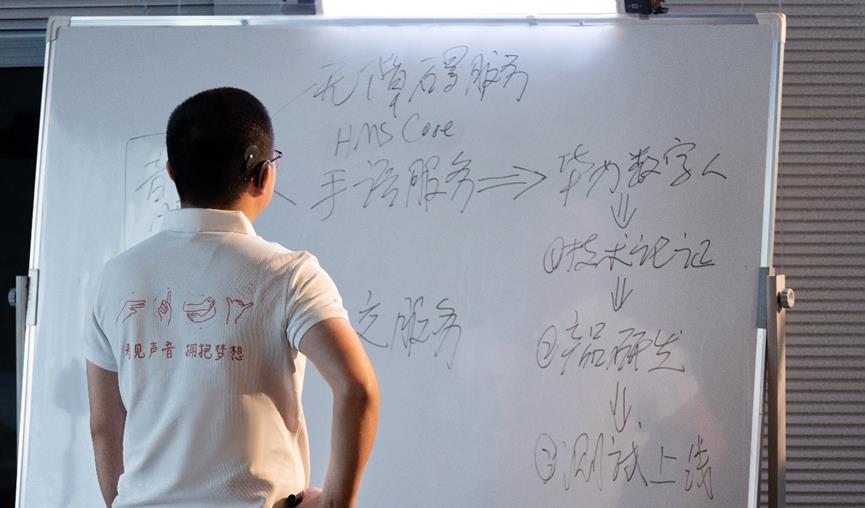 无障碍服务
HMS Core
手语服务 ⇒ 华为数字人
⇓
①技术论证
⇓
交服务
②产品研发
⇓
③测试上线
看见声音 拥抱梦想